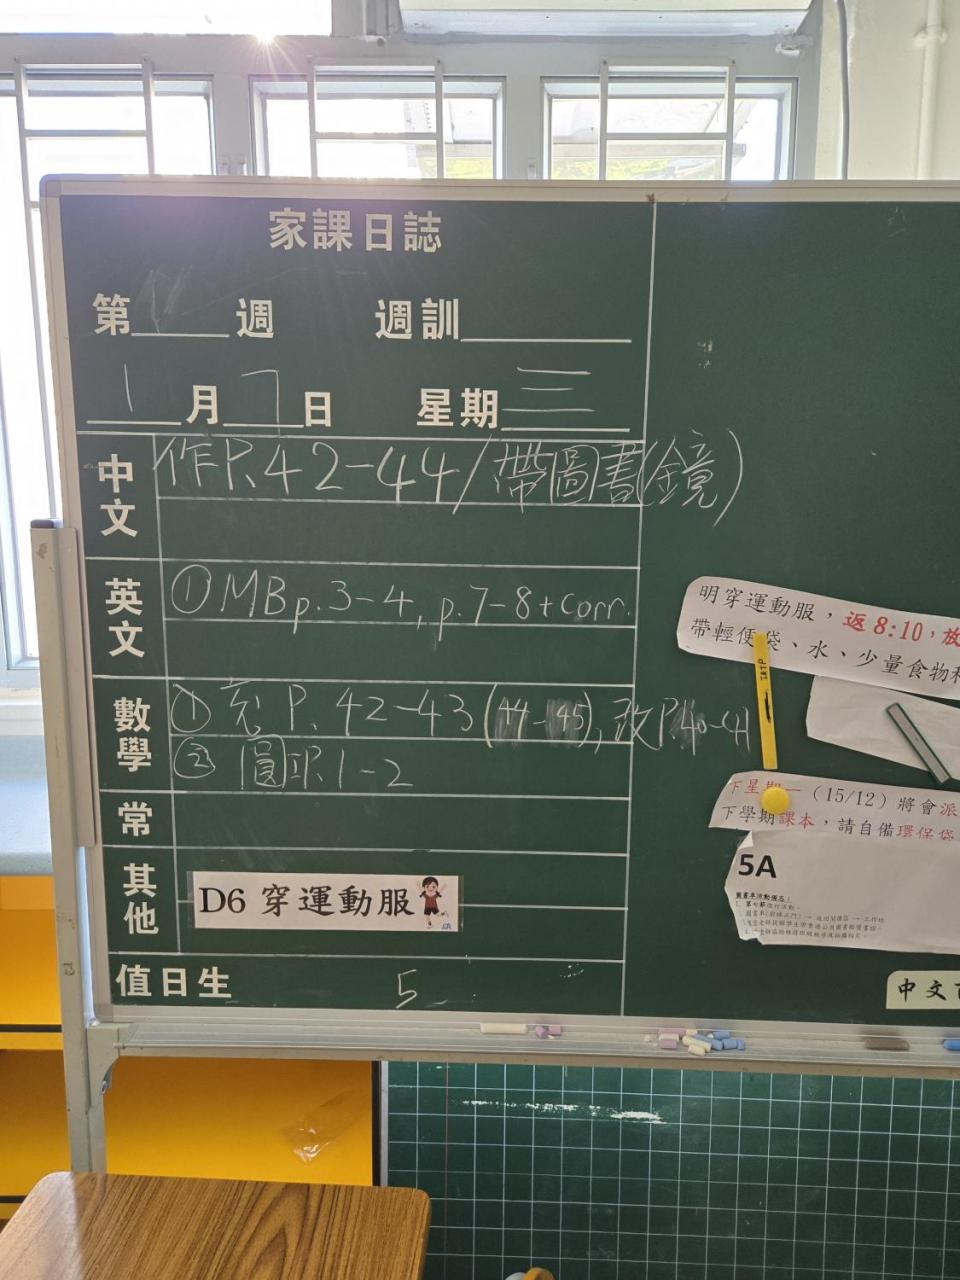 家課日誌
第 週 週訓
1月7日 星期三
中文
作P.42-44/帶圖書(鏡)
英文
①MB p.3-4, p.7-8+corr.
數學
① P. 42-43(44-45), 改P.40-41
② 圓 P.1-2
常
其他
D6 穿運動服
值日生 5
明穿運動服，返8:10，放
帶輕便袋、水、少量食物
下星期一 (15/12) 將會派
下學期課本，請自備環保袋
5A
中文